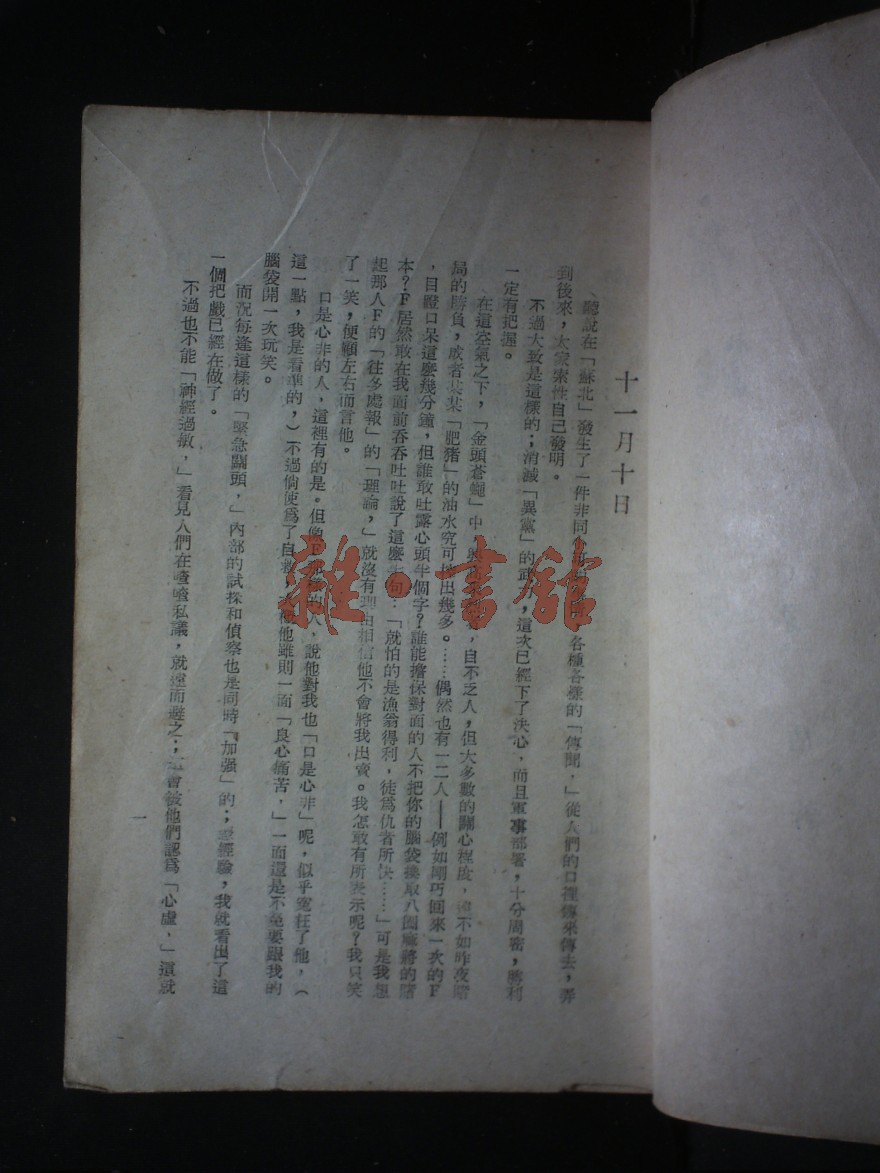 十一月十日
聽說在「蘇北」發生了一件非同，各種各樣的「傳聞，」從人們的口裡傳來傳去，弄
到後來，大家索性自己發明。
不過大致是這樣的；消滅「異黨」的武，這次已經下了決心，而且軍事部署，十分周密，勝利
一定有把握。
在這空氣之下，「金頭蒼蠅」中，興，自不乏人，但大多數的關心程度，遠不如昨夜賭
局的勝負，或者某某「肥猪」的油水究可搾出幾多。……偶然也有一二人——例如剛巧回來一次的F
，目瞪口呆這麽幾分鐘，但誰敢吐露心頭半個字？誰能擔保對面的人不把你的腦袋換取八圈麻將的賭
本？F居然敢在我面前吞吞吐吐說了這麽半句：「就怕的是漁翁得利，徒爲仇者所快……」可是我想
起那人F的「往多處報」的「理論，」就沒有理由相信他不會將我出賣。我怎敢有所表示呢？我只笑
了一笑，便顧左右而言他。
口是心非的人，這裡有的是。但像F那樣的人，說他對我也「口是心非」呢，似乎冤枉了他，（
這一點，我是看準的，）不過倘使爲了自救，他雖則一面「良心痛苦，」一面還是不免要跟我的
腦袋開一次玩笑。
而況每逢這樣的「緊急關頭，」內部的試探和偵察也是同時「加强」的；經驗，我就看出了這
一個把戲已經在做了。
不過也不能「神經過敏，」看見人們在喳喳私議，就遠而避之；會被他們認爲「心虛，」這就
一
雜·書館